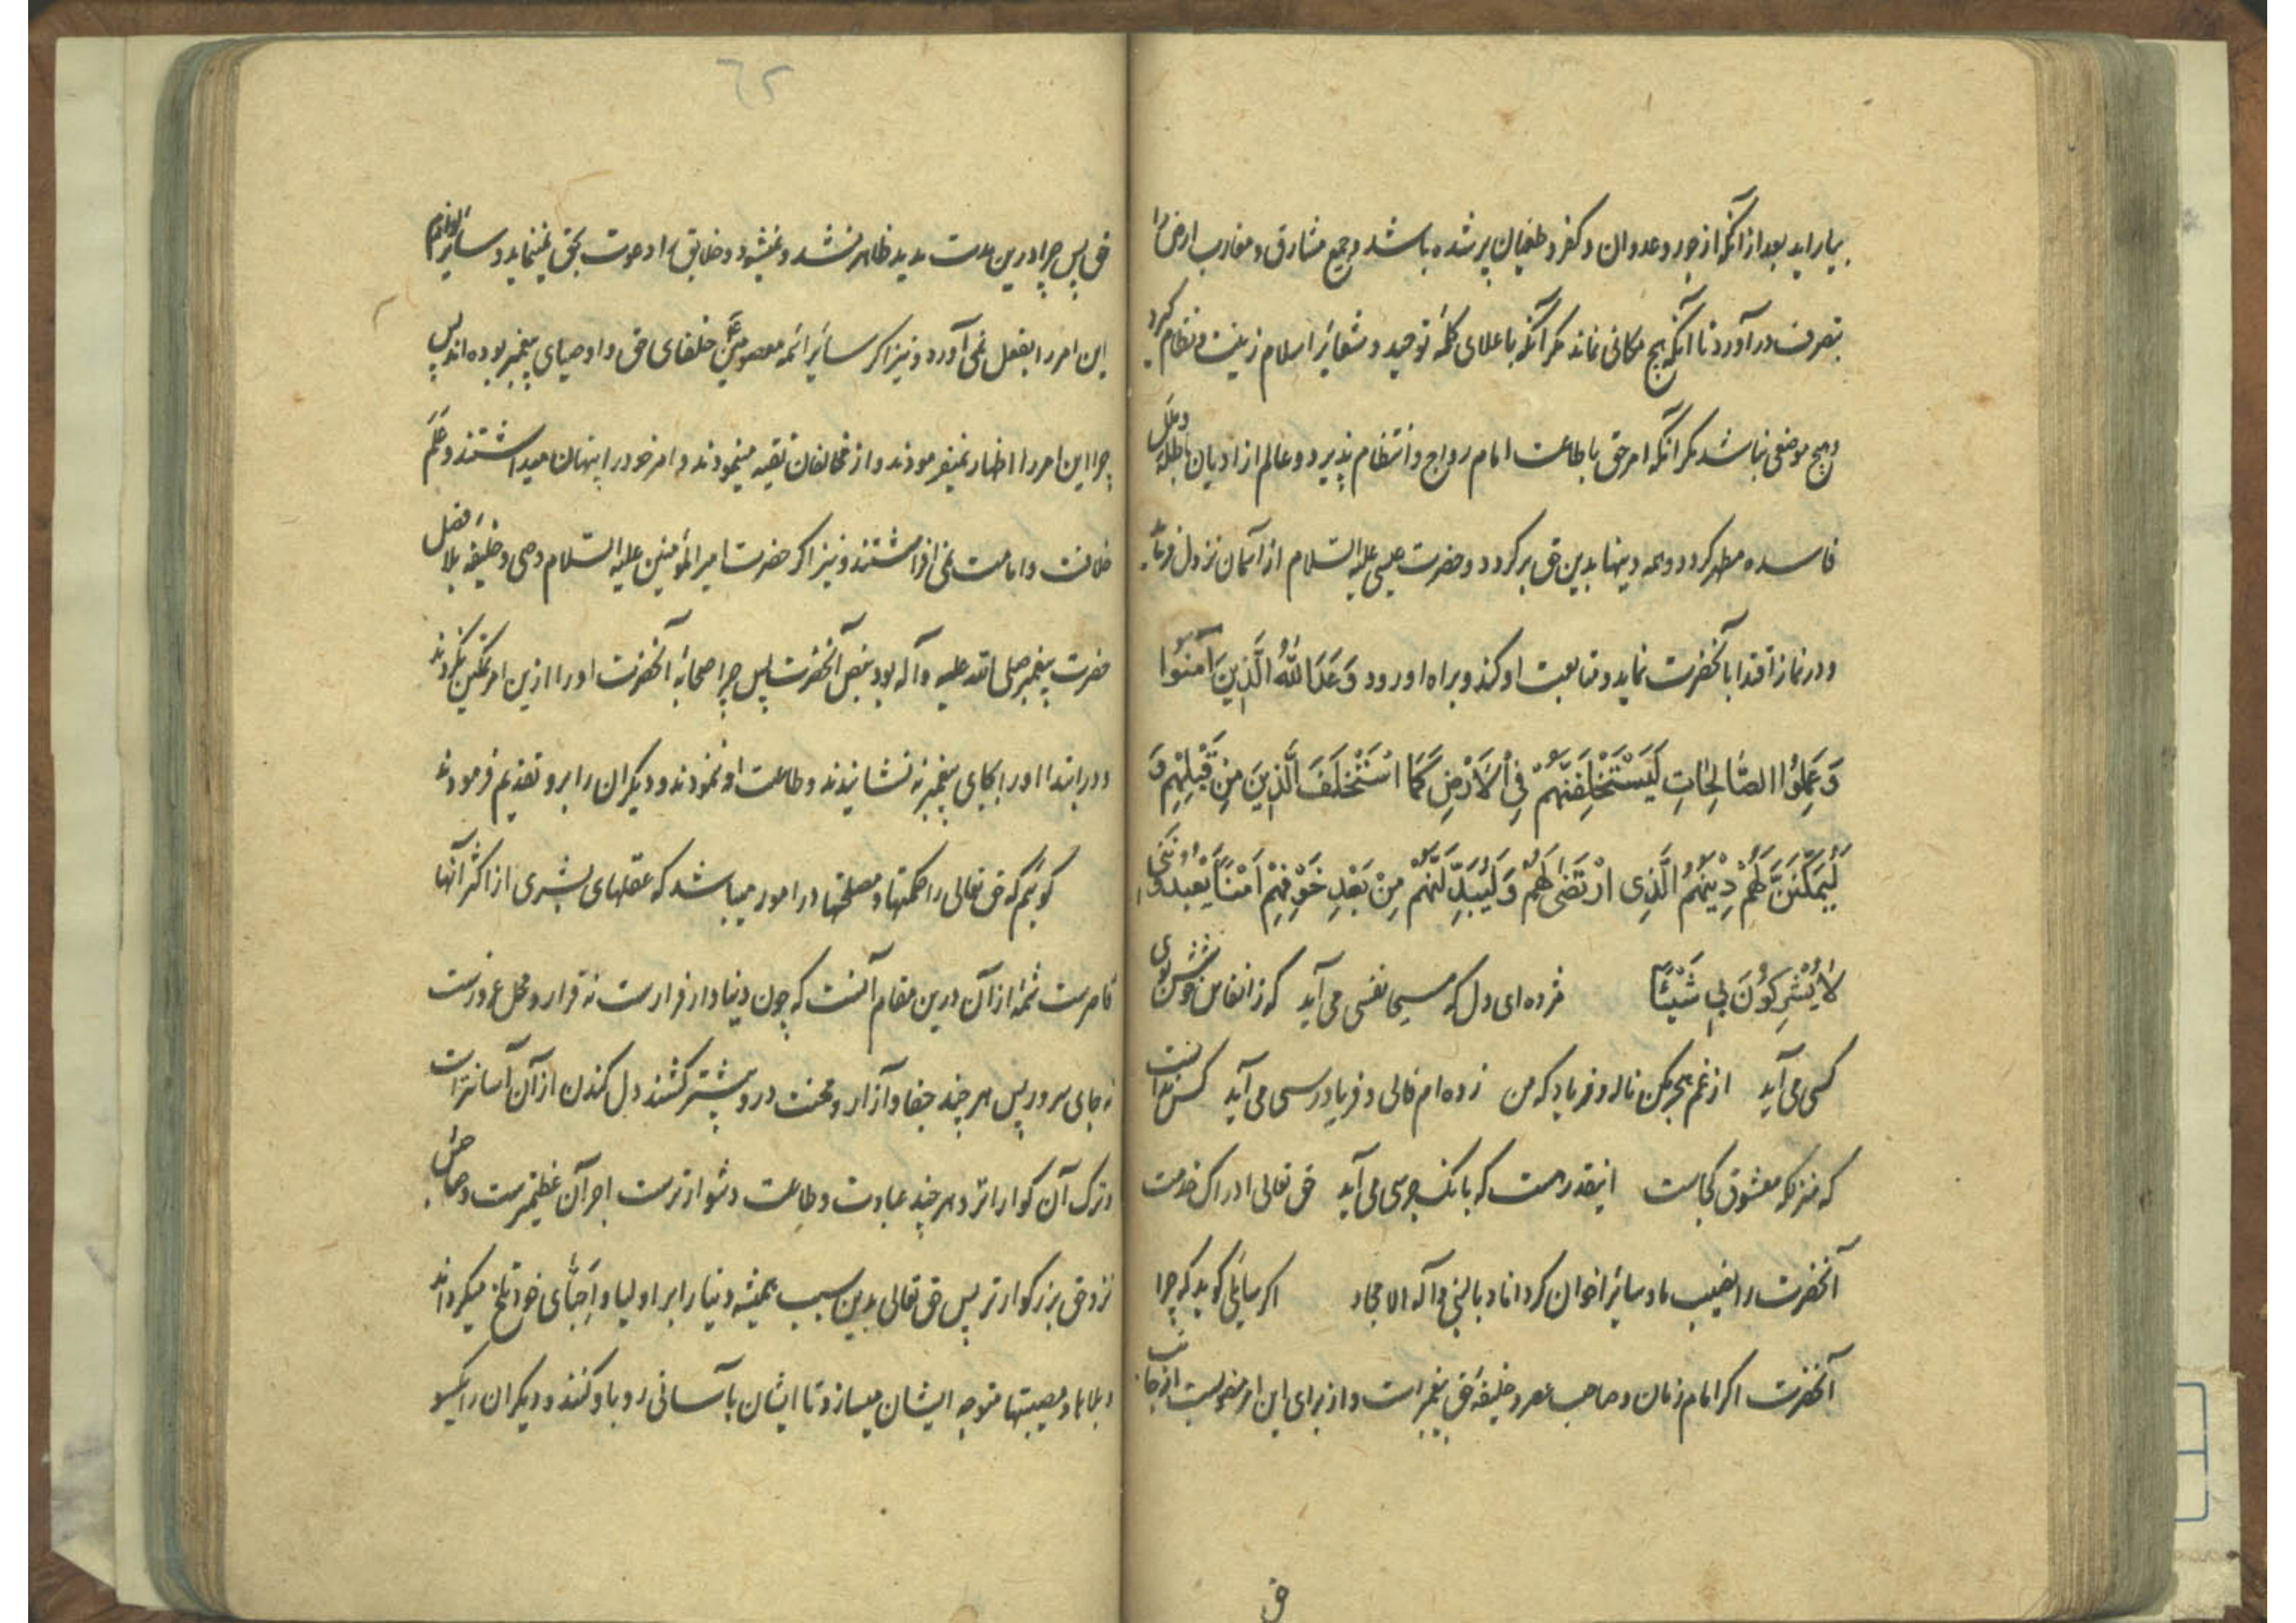 بیاراید بعد از آنکه از جور و عدوان و کفر و طغیان پر شده باشد و جمیع مشارق و مغارب ارض را
بتصرف در آورد تا آنکه هیچ مکانی نماند مکر آنکه باعلای کلمهٔ توحید و شعائر اسلام زینت و نظام کیرد
و هیچ موضعی نباشد مکر آنکه امر حق باطاعت امام رواج و انتظام پذیرد و عالم از ادیان باطله و ملل
فاسده مطهر کردد و همه دینها بدین حق بر کردد و حضرت عیسی علیه السّلام از آسمان نزول فرماید
و در نماز اقتدا بآنحضرت نماید و متابعت او کند و براه او رود وَعَدَ اللّٰهُ الَّذِینَ اٰمَنُوا
وَعَمِلُوا الصَّالِحَاتِ لَیَسْتَخْلِفَنَّهُمْ فِی الْاَرْضِ کَمَا اسْتَخْلَفَ الَّذِینَ مِنْ قَبْلِهِمْ وَ
لَیُمَکِّنَنَّ لَهُمْ دِینَهُمُ الَّذِی ارْتَضٰی لَهُمْ وَلَیُبَدِّلَنَّهُمْ مِنْ بَعْدِ خَوْفِهِمْ اَمْنًا یَعْبُدُونَنِی
لَا یُشْرِکُونَ بِی شَیْئًا مژده ای دل که مسیحا نفسی می آید که ز انفاس خوشش بوی
کسی می آید از غم هجر مکن ناله و فریاد که من زده ام فالی و فریاد رسی می آید کس ندانست
که منزلکه معشوق کجاست اینقدر هست که بانک جرسی می آید حق تعالی ادراک خدمت
آنحضرت را نصیب ما و سایر اخوان کرداناد بالنبی و آله الامجاد اکر سایلی کوید که چرا
آنحضرت اکر امام زمان و صاحب عصر و خلیفهٔ حق پیغمبر است و از برای این امر منصوبست از جانب
حق
۶۵
حق پس چرا درین مدت مدید ظاهر نشد و نمیشود و خلایق را دعوت بحق نمینماید و سایر لوازم
این امر را بفعل نمی آورد و نیز اکر سایر ائمه معصومین ع خلفای حق و اوصیای پیغمبر بوده اند پس
چرا این امر را اظهار نمیفرمودند و از مخالفان تقیه مینمودند و امر خود را پنهان میداشتند و علم
خلافت و امامت نمی افراشتند و نیز اکر حضرت امیر المؤمنین علیه السّلام وصی و خلیفهٔ بلا فصل
حضرت پیغمبر صلی الله علیه و آله بود بنص آنحضرت پس چرا صحابهٔ آنحضرت او را ازین امر تمکین نکردند
و در ابتدا او را بجای پیغمبر نه نشانیدند و طاعت او ننمودند و دیکران را برو تقدیم فرمودند
کوئیم که حق تعالی را حکمتها و مصلحتها در امور میباشد که عقلهای بشری از اکثر آنها
قاصرست شمهٔ از آن درین مقام آنست که چون دنیا دار فرارست نه قرار و محل عزورست
نه جای سرور پس هر چند جفا و آزار و محنت درو بیشتر کشند دل کندن از آن آسانتر است
و ترک آن کواراتر و هر چند عبادت و طاعت دشوارترست اجر آن عظیمترست و صاحبش
نزد حق بزرکوارتر پس حق تعالی بدین سبب همیشه دنیا را بر اولیا و احبّای خود تلخ میکرداند
و بلاها و مصیبتها متوجه ایشان میسازد تا ایشان بآسانی رو باو کنند و دیکران را یکسو